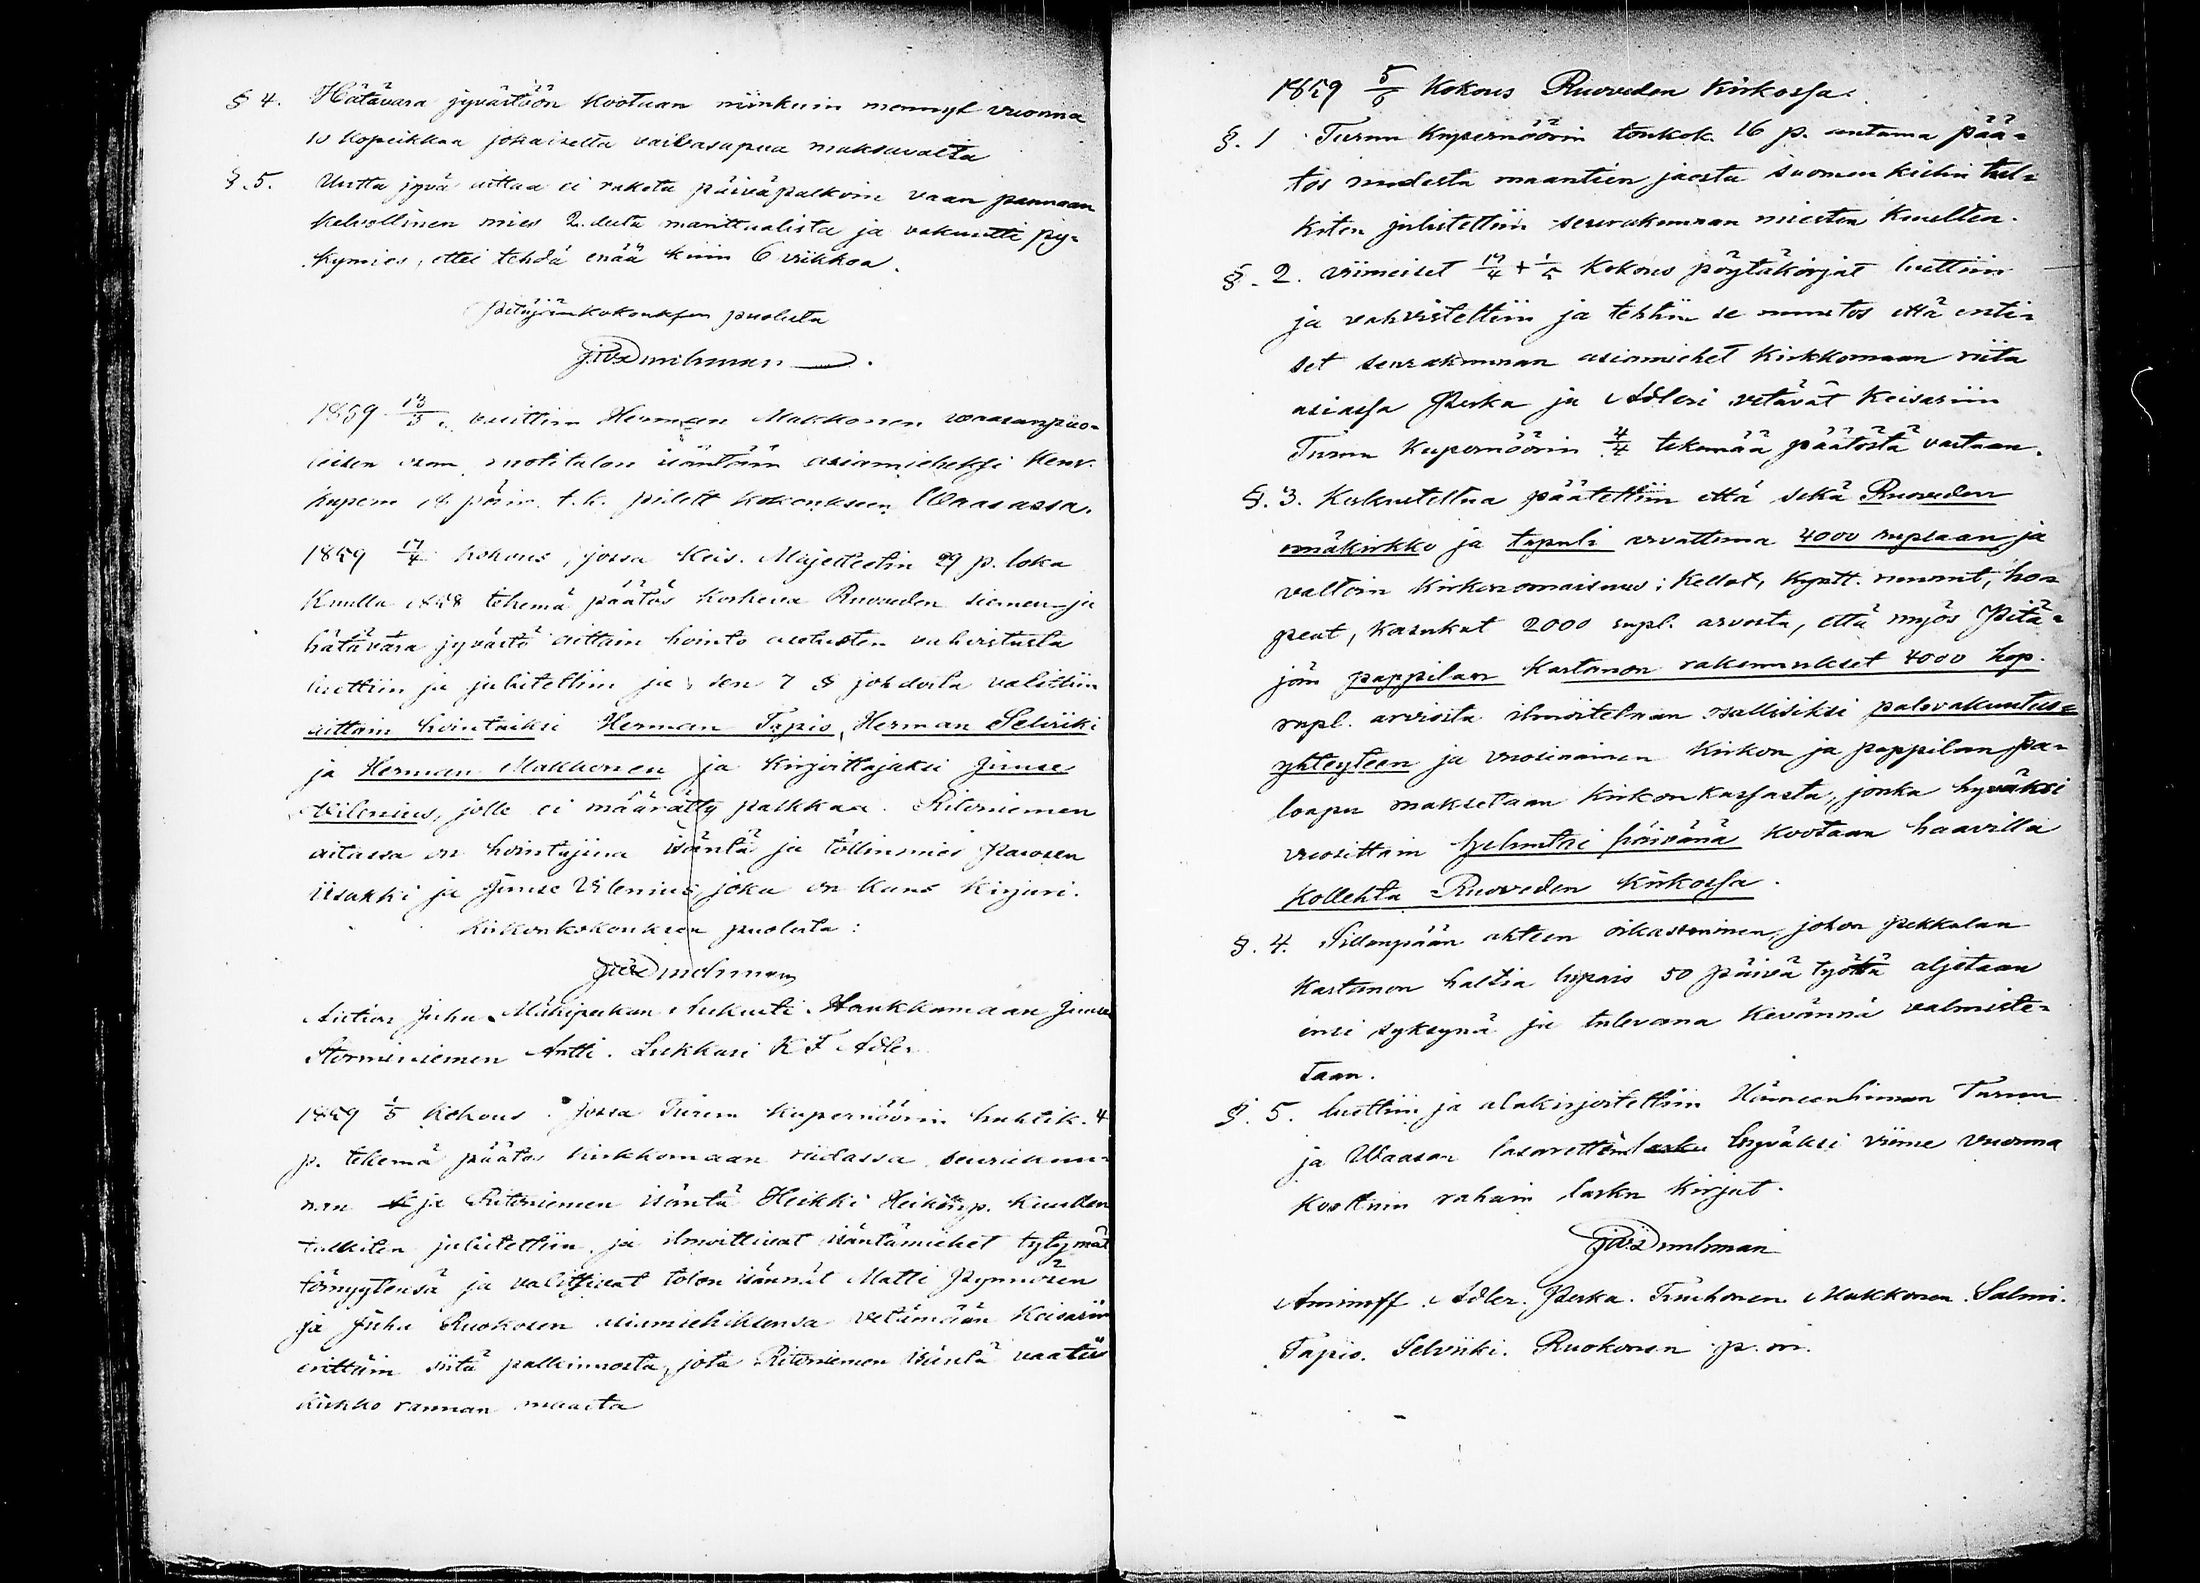 § 4. Hätävara jyvästöön kootaan niinkuin mennyt vuonna
10 kopeikkaa jokaiselta vaivasapua maksavalta
§. 5. Uutta jyvä aittaa ei raketa päiväpalkoin vaan pannaan
kelvollinen mies 2. desta manttaalista ja vakuutti py-
kymies, ettei tehdä enää kuin 6 viikkoa.
Pitäjänkokouksen puolesta
1859 13/5. valittiin Herman Makkonen vaasanpuo-
leisen osan isäntäin asiamieheksi Kenr.
kupern 18 päiv. t.k. pidett kokoukseen Waasassa.
1859 17/4 kokous, jossa Keis. Majesteetin 29 p. loka
Kuulla 1858 tehemä päätös koskeva Ruoveden siemen- ja
hätävara jyvästö aittain hointo asetusten vahvistusta
luettiin ja julistettiin ja sen 7 § johdosta valittiin
aittain hointaiksi Herman Tapio, Herman Selvriki
ja Herman Makkonen ja kirjoittajaksi Juuse
Vilenius, jolle ei määrätty palkkaa. Ritoniemen
aitassa on hointajina isäntä ja töllinmies Parosen
Iisakki ja Juuse Vilenius, joka on kans kirjuri.
Kirkonkokouksen puolesta:
Aution Juha. Mäkipukan Aukusti. Haukkamaan Juuse
Storminiemen Antti. Lukkari K F Adler
1859 1/5 kokous. jossa Turun Kupernöörin huhtik. 4
p. tekemä päätös kirkkomaan riidassa seurakun-
nan ja Ritoniemen isäntä Heikki Heikinp. kuullen
tulkiten julistettiin, ja ilmoittivat isäntämiehet tytymät-
tömyytensä ja valitsivat talon isännät Matti Pynnösen
ja Juha Ruokosen asiamiehiksensä vetämään Keisariin
erittäin siitä palkinnosta, jota Ritoniemen isäntä vaatii
kirkko rannan maasta
1859 5/6 Kokous Ruoveden kirkossa.
§. 1 Turun Kupernöörin toukok. 16 p. antama pää-
tös uudesta maantien jaosta Suomen kielin tul-
kiten julistettiin seurakunnan miesten kuullen.
§. 2. viimeiset 17/4 + 1/5 Kokous pöytäkirjat luettiin
ja vahvistettiin ja tehtiin se muutos että enti-
set seurakunnan asiamiehet kirkkomaan riita
asiassa Perka ja Adleri vetävät Keisariin
Turun Kupernöörin 4/4 tekemää päätöstä vastaan.
§. 3. Keskusteltua päätettiin että sekä Ruoveden
emäkirkko ja tapuli arvattuna 4000 ruplaan ja
valtoin kirkonomaisuus: Kellot, Kyntt. ruunut, ho-
peat, kasukat 2000 rupl. arvosta, että myös Pitä-
jän pappilan kartanon rakennukset 4000 hop.
rupl. arviosta ilmoitetaan osallisiksi palovakuutus-
yhteyteen ja vuosinainen kirkon ja pappilan pa-
loapu maksetaan kirkonkassasta, jonka hyväksi
vuosittain helluntai päivänä kootaan haavilla
Kollehta Ruoveden kirkossa.
§. 4. Sillanpään ahteen oikaseminen, johon Pekkalan
Kartanon haltia lupais 50 päivä työtä aljetaan
ensi syksynä ja tulevana kevännä valmiste-
taan.
§. 5. luettiin ja alakirjoitettiin Hämeenlinnan Turun
ja Waasan lasarettein hyväksi viime vuonna
koottuin rahain lasku kirjat.
Aminoff. Adler. Perka. Tiuhonen. Makkonen. Salmi.
Tapio. Selvriki. Ruokonen p. m.